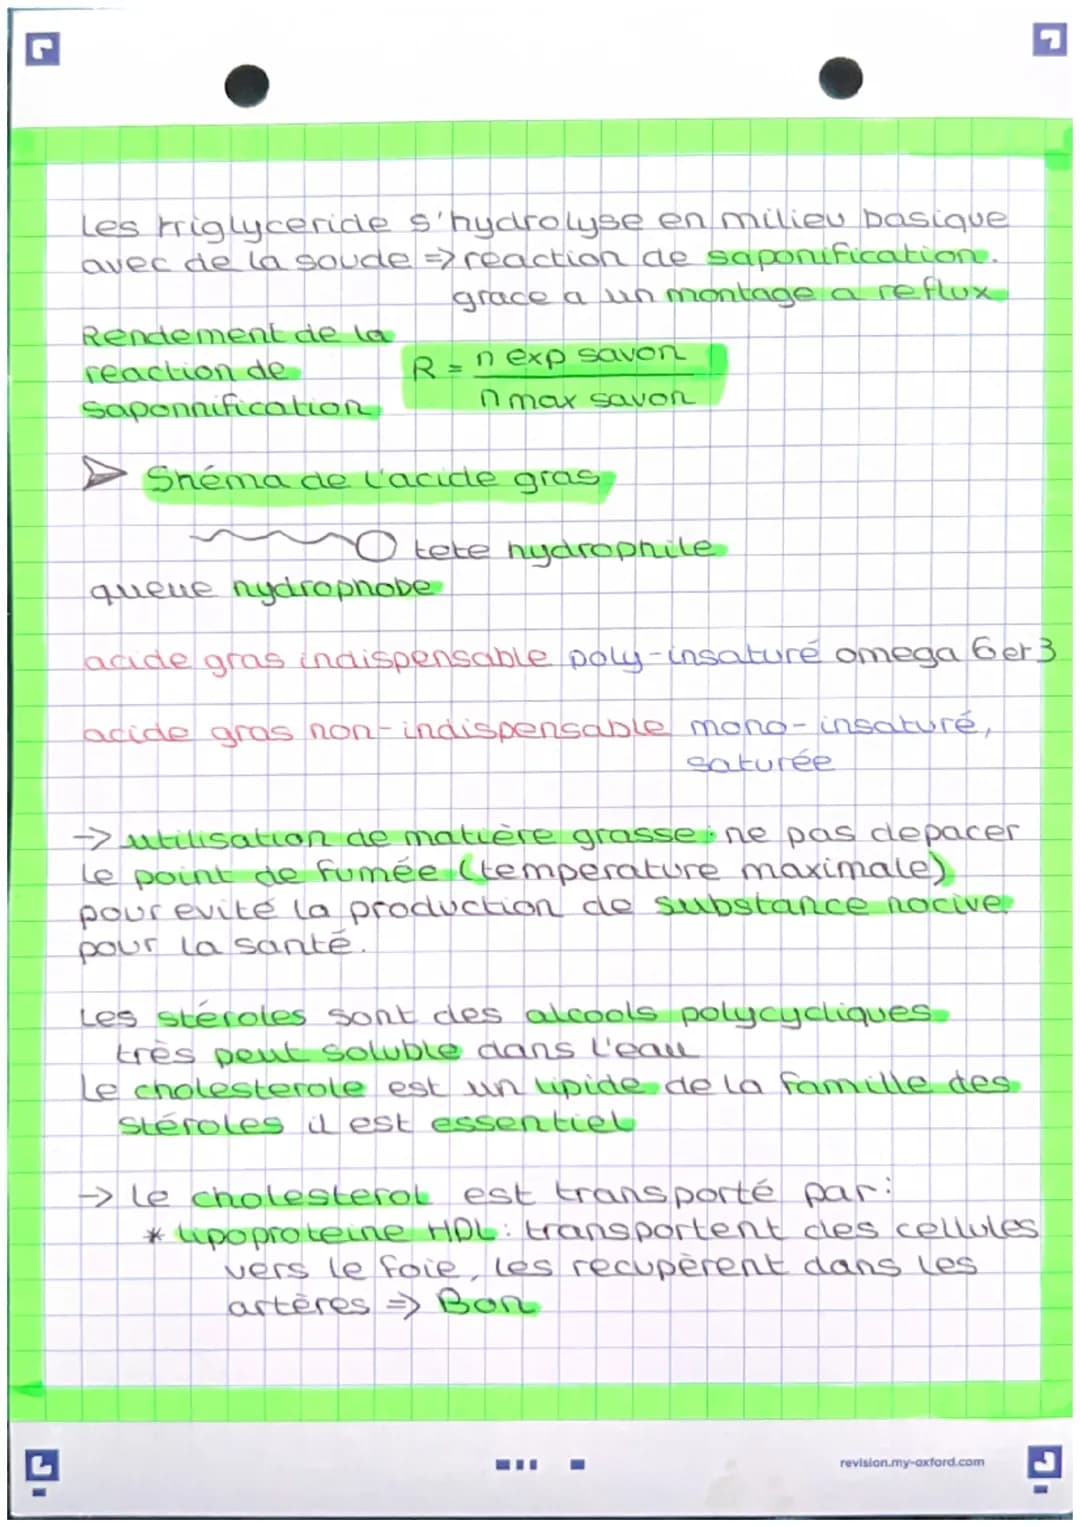 Les triglyceride s'hydrolyse en milieu basique
avec de la soude => reaction de saponification.
grace a un montage a reflux
Rendement de la
reaction de
saponnification
R = n exp savon
n max savon
Shéma de l'acide gras
tete hydrophile
queue hydrophobe
acide gras indispensable poly-insaturé omega 6 et 3
acide gras non-indispensable mono-insaturé,
saturée
-> utilisation de matière grasse : ne pas depacer
le point de fumée (temperature maximale)
pour evité la production de substance nocive
pour la santé.
Les stéroles sont des alcools polycycliques
très peut soluble dans l'eau
Le cholesterole est un lipide de la famille des
stéroles il est essentiel
-> le cholesterol est transporté par :
* lipoproteine HDL : transportent des cellules
vers le foie, les recupèrent dans les
artères => Bon
revision.my-oxford.com